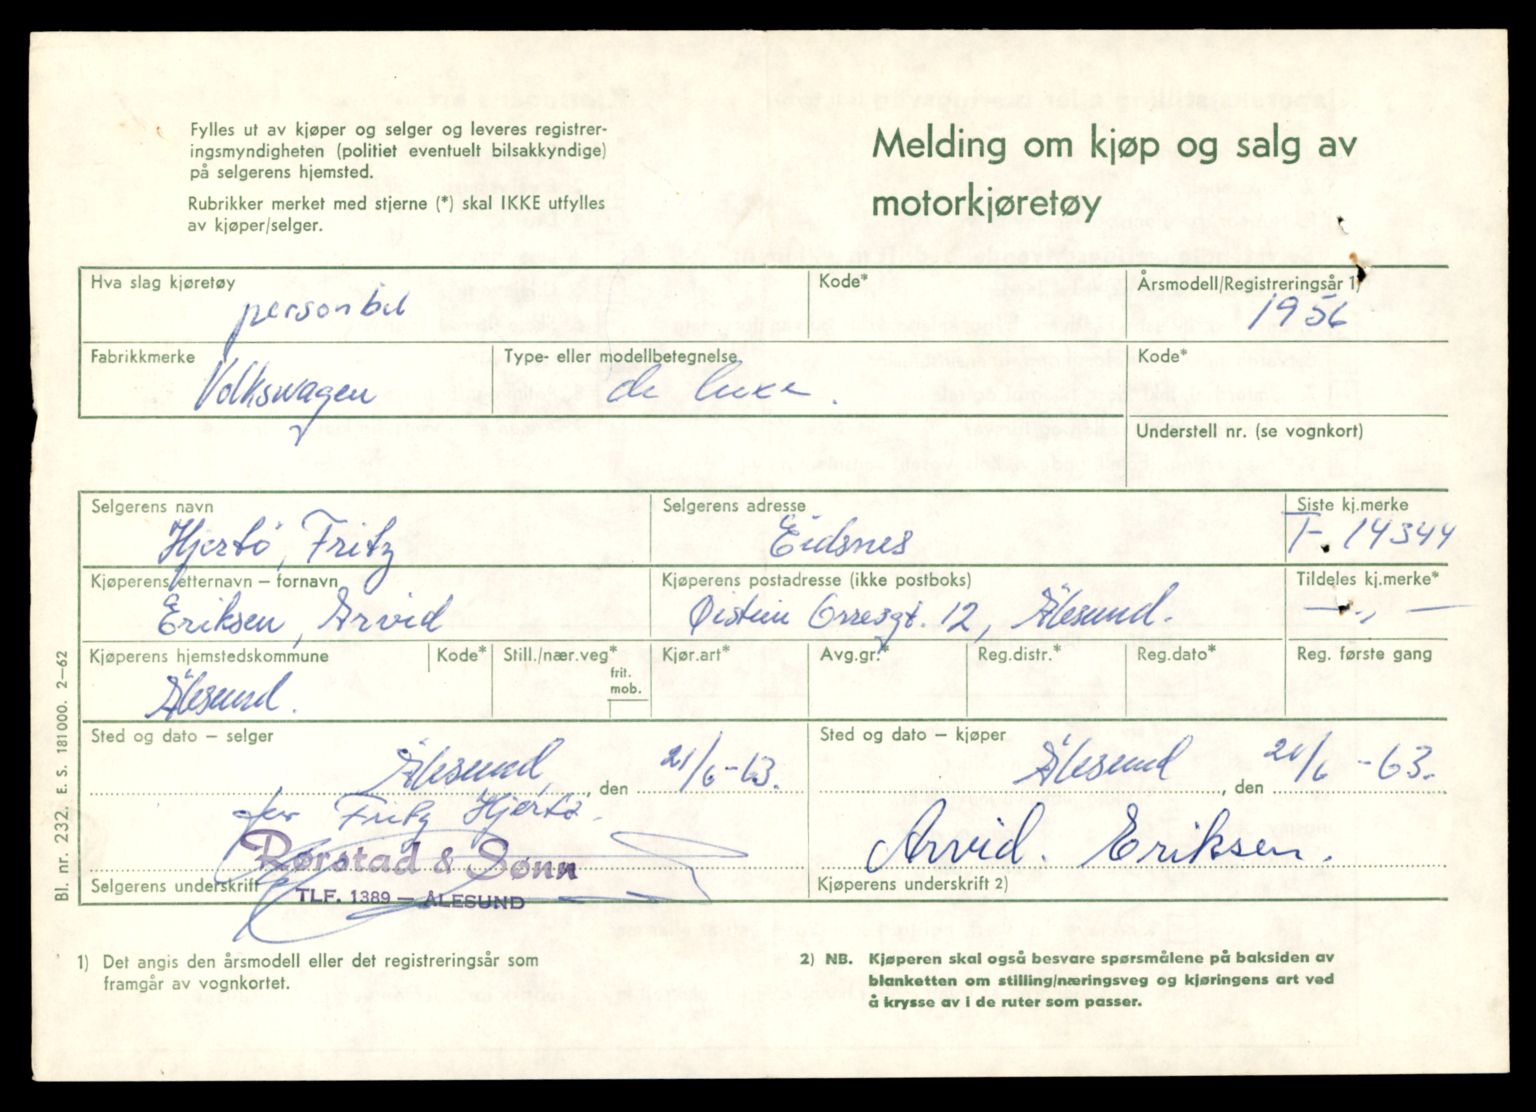 Fylles ut av kjøper og selger og leveres registrer-
ingsmyndigheten (politiet eventuelt bilsakkyndige)
på selgerens hjemsted.
Rubrikker merket med stjerne (*) skal IKKE utfylles
av kjøper/selger.
Melding om kjøp og salg av
motorkjøretøy
Hva slag kjøretøy
personbil
Kode*
Årsmodell/Registreringsår 1)
1956
Fabrikkmerke
Volkswagen
Type- eller modellbetegnelse
de luxe.
Kode*
Understell nr. (se vognkort)
Selgerens navn
Hjertø, Fritz
Selgerens adresse
Eidsnes
Siste kj.merke
T-14344
Kjøperens etternavn – fornavn
Eriksen, Arvid
Kjøperens postadresse (ikke postboks)
Øistein Orresgt. 12, Ålesund.
Tildeles kj.merke*
— „ —
Kjøperens hjemstedskommune
Ålesund.
Kode*
Still./nær.veg*
frit.
mob.
Kjør.art*
Avg.gr.*
Reg.distr.*
Reg.dato*
Reg. første gang
Sted og dato – selger
Ålesund, den 21/6-63.
for Fritz Hjertø.
Rørstad & Sønn
TLF. 1389 — ÅLESUND
Selgerens underskrift
Sted og dato – kjøper
Ålesund, den 21/6-63.
Arvid. Eriksen.
Kjøperens underskrift 2)
1) Det angis den årsmodell eller det registreringsår som
framgår av vognkortet.
2) NB. Kjøperen skal også besvare spørsmålene på baksiden av
blanketten om stilling/næringsveg og kjøringens art ved
å krysse av i de ruter som passer.
Bl. nr. 232. E. S. 181000. 2–62